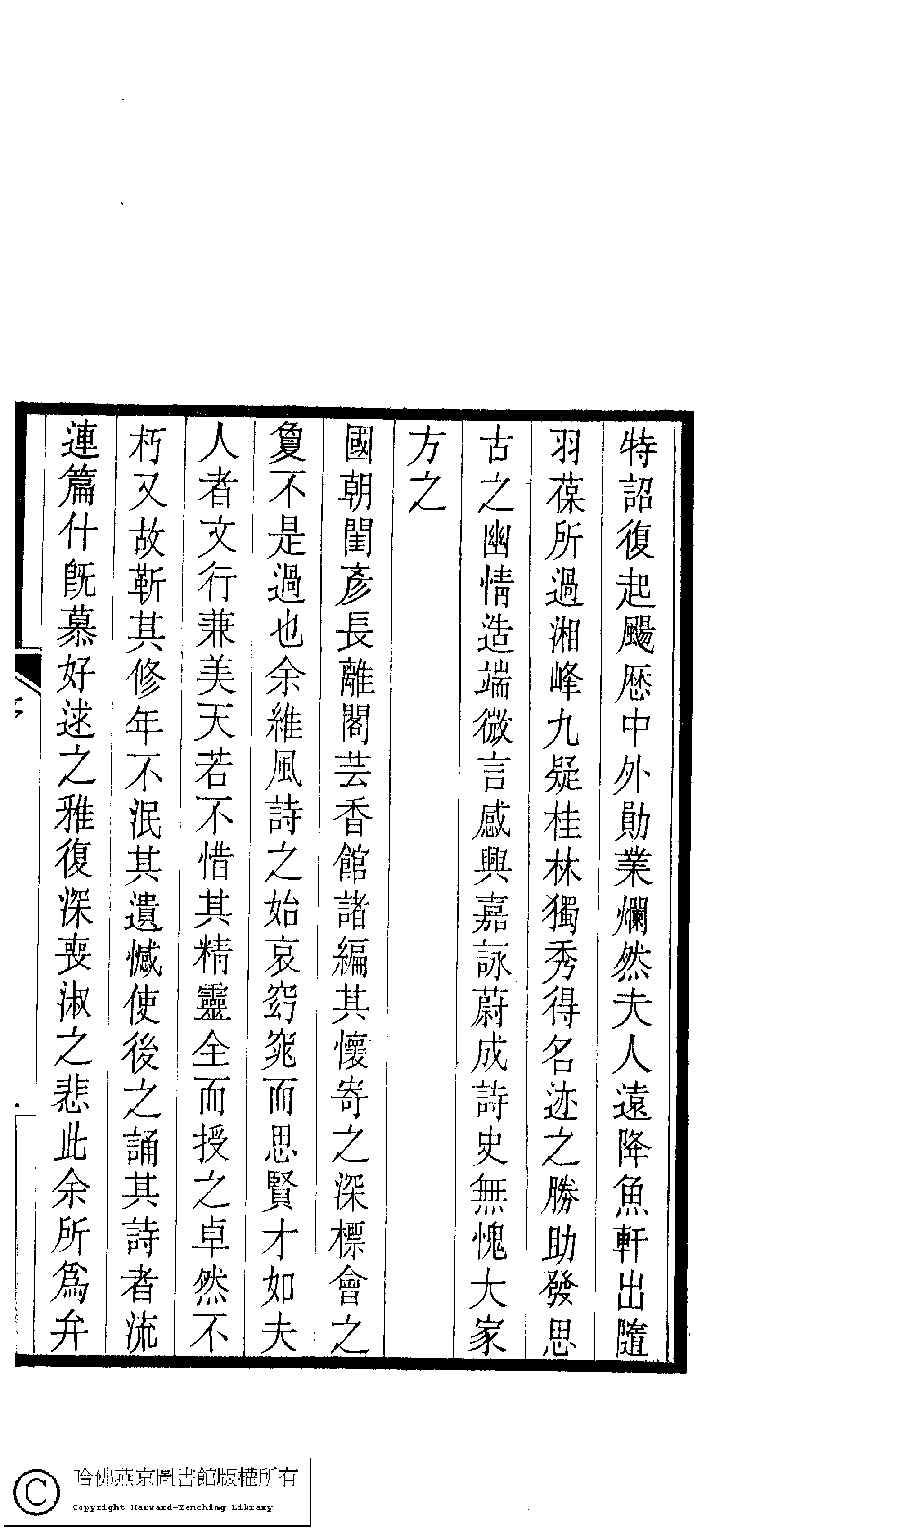 特詔復起颺歷中外勛業爛然夫人遠降魚軒出隨
羽葆所過湘峰九疑桂林獨秀得名迹之勝助發思
古之幽情造端微言感興嘉詠蔚成詩史無愧大家
方之
國朝閨彥長離閣芸香館諸編其懷寄之深標會之
敻不是過也余維風詩之始哀窈窕而思賢才如夫
人者文行兼美天若不惜其精靈全而授之卓然不
朽又故靳其修年不泯其遺憾使後之誦其詩者流
連篇什旣慕好逑之雅復深喪淑之悲此余所爲弁
哈佛燕京圖書館版權所有
Copyright Harvard-Yenching Library